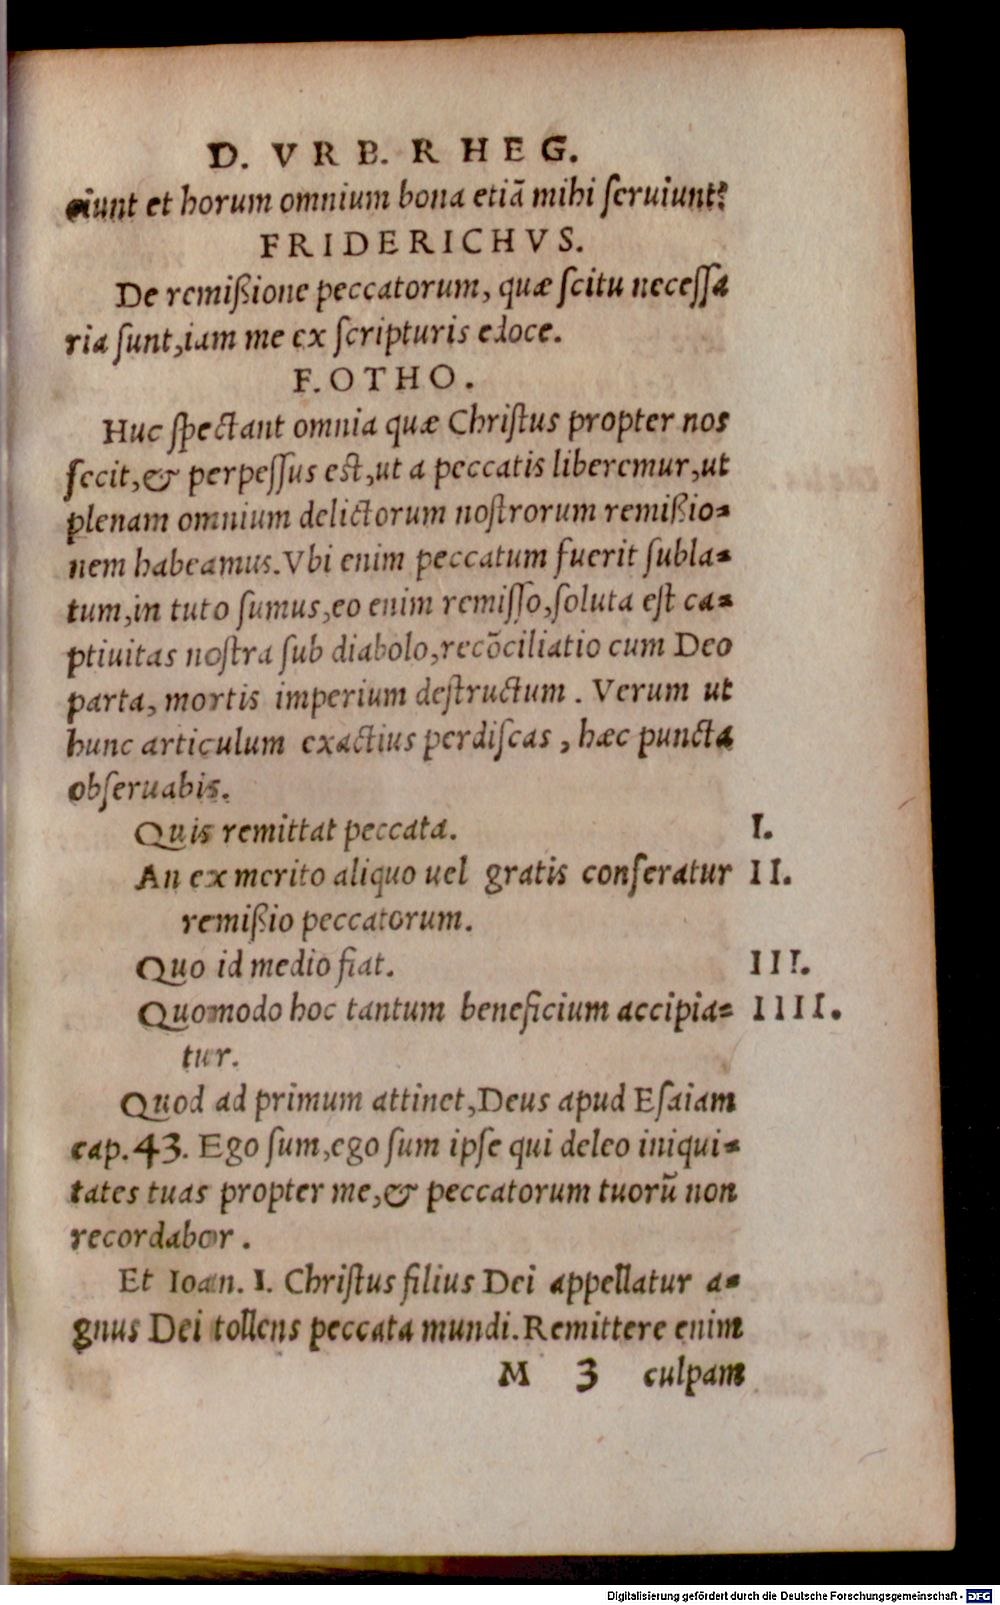 D. VRB. RHEG.
ciunt et horum omnium bona etiã mihi ſeruiunt?
FRIDERICHVS.
De remißione peccatorum, quæ ſcitu neceſſa
ria ſunt, iam me ex ſcripturis edoce.
F. OTHO.
Huc ſpectant omnia quæ Chriſtus propter nos
fecit, & perpeſſus eſt, ut a peccatis liberemur, ut
plenam omnium delictorum noſtrorum remißio-
nem habeamus. Vbi enim peccatum fuerit ſubla-
tum, in tuto ſumus, eo enim remiſſo, ſoluta eſt ca-
ptiuitas noſtra ſub diabolo, recõciliatio cum Deo
parta, mortis imperium deſtructum. Verum ut
hunc articulum exactius perdiſcas, hæc puncta
obſeruabis.
Quis remittat peccata. I.
An ex merito aliquo uel gratis conferatur II.
remißio peccatorum.
Quo id medio fiat. III.
Quomodo hoc tantum beneficium accipia- IIII.
tur.
Quod ad primum attinet, Deus apud Eſaiam
cap. 43. Ego ſum, ego ſum ipſe qui deleo iniqui-
tates tuas propter me, & peccatorum tuorũ non
recordabor.
Et Ioan. I. Chriſtus filius Dei appellatur a-
gnus Dei tollens peccata mundi. Remittere enim
M 3 culpam
Digitalisierung gefördert durch die Deutsche Forschungsgemeinschaft - DFG